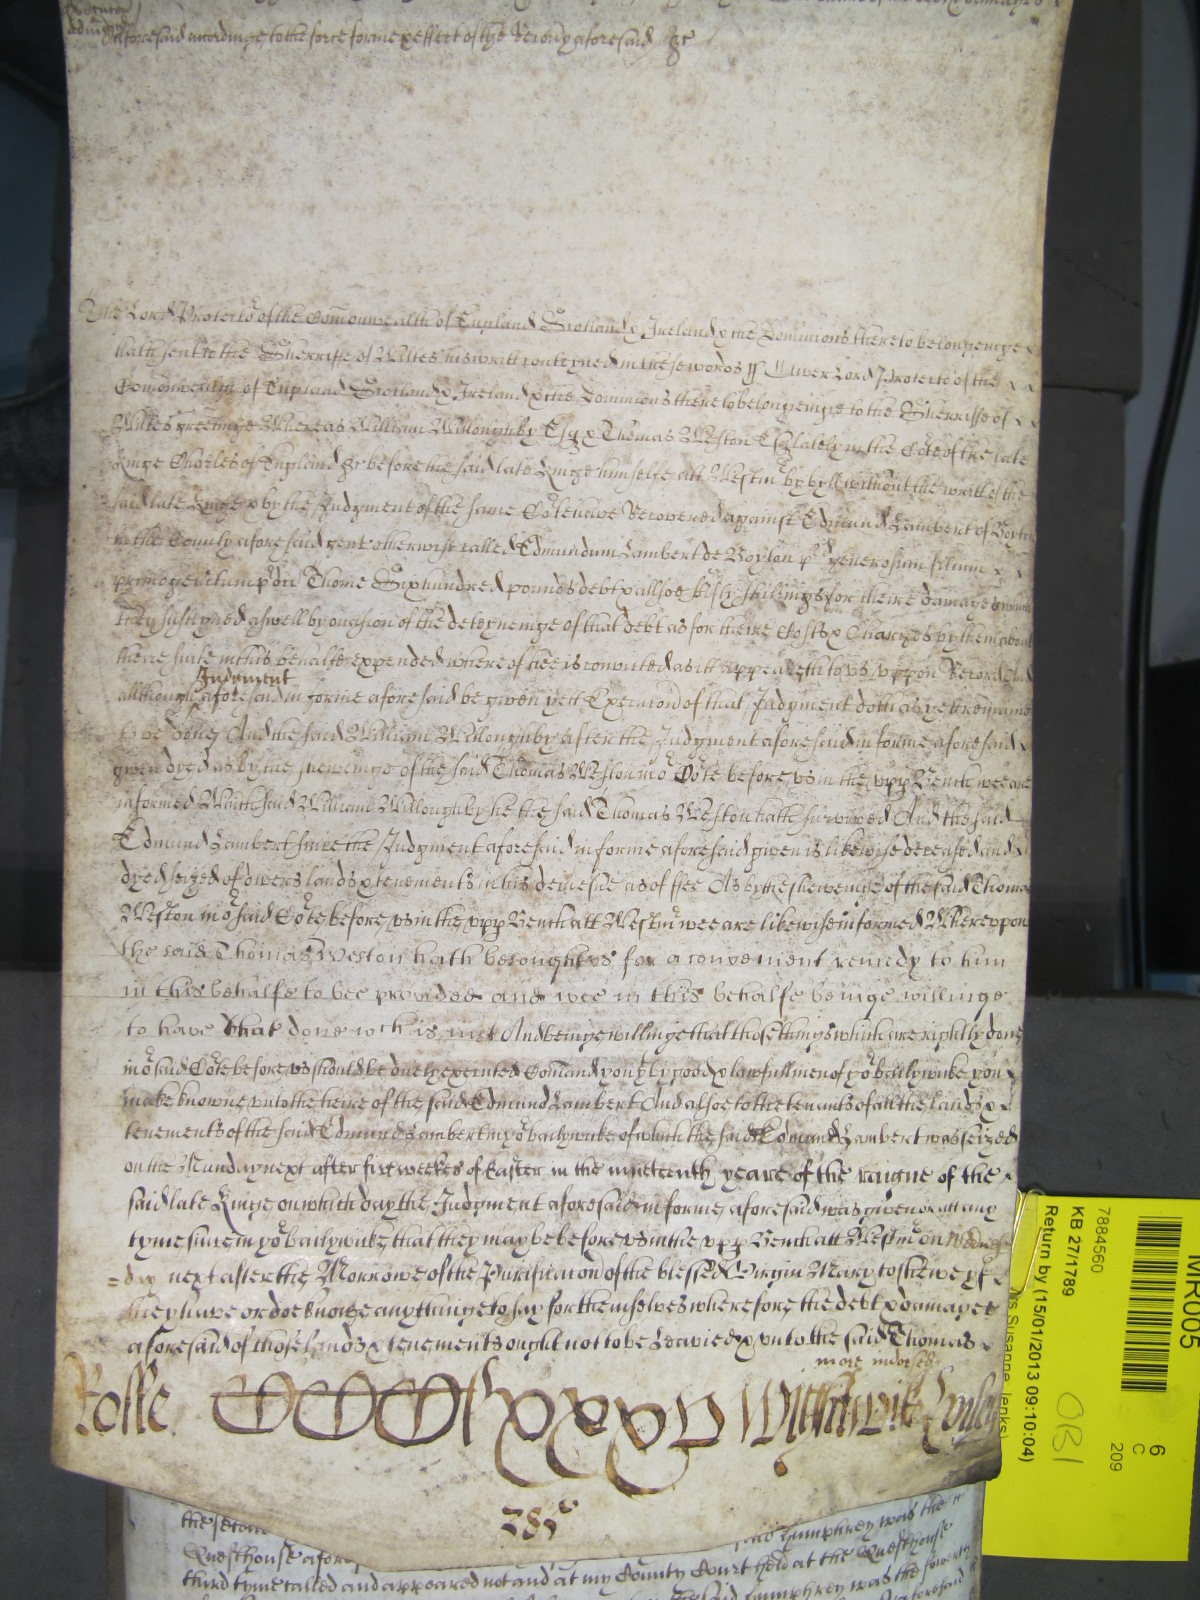 aforesaid accordinge to the force forme & effect of the Record aforesaid &c
The Lord Protector of the Comonwealth of England Scotland & Ireland & the Dominions thereto belonginge
hath sent to the Sherriffe of Wiltes his writt conteyned in these words ss Oliver Lord Protector of the
Comonwealth of England Scotland & Ireland & the Dominions thereto belonginge to the Sherriffe of
Wiltes greetinge Whereas William Willoughby Esq & Thomas Weston Esq lately in the Cote of the late
Kinge Charles of England &c before the said late Kinge himselfe att Westm by byll without the writt of the
said late Kinge & by the Judgment of the same Cote have Recovered against Edmund Lambert of Boyton
in the County aforesaid gent otherwise called Edmundum Lambert de Boyton generosum filium
primogenitum Thome Six hundred pounds debt & allsoe fifty shillings for theire damages which
they susteyned aswell by occasion of the deteyneinge of that debt as for theire Costs & Charges by them about
theire suite in this behalfe expended whereof hee is convicted as itt appeareth to us uppon Record And
Judgment
allthough aforesaid in forme aforesaid be given yett Execucion of that Judgment doth as yett remaine
to be done And the said William Willoughby after the Judgment aforesaid in forme aforesaid
given dyed as by the sheweinge of the said Thomas Weston in o Cote before us in the upp Bench wee are
informed Which said William Willoughby he the said Thomas Weston hath survived And the said
Edmund Lambert since the Judgment aforesaid in forme aforesaid given is likewise deceased and
dyed seized of divers lands & tenements in his demesne as of ffee As by the sheweinge of the said Thomas
Weston in o said Cote before us in the upp Bench att Westm wee are likewise informed Whereuppon
the said Thomas Weston hath besought us for a convenient remedy to him
in this behalfe to bee provided and wee in this behalfe beinge willinge
to have that done wch is just And beinge willinge that those things which are rightly done
in o said Cote before us should be duely executed Comand you that by good & lawfull men of yo bailywicke you
make knowne unto the heire of the said Edmund Lambert And alsoe to the tenants of all the lands &
tenements of the said Edmund Lambert in yo bailywicke of which the said Edmund Lambert was seized
on the Munday next after five weekes of Easter in the nineteenth yeare of the raigne of the
said late Kinge on which day the Judgment aforesaid in forme aforesaid was given or att any
tyme since in yo bailywicke that they may be before us in the upp Bench att Westm on Wednes
=day next after the Morrowe of the Purificacion of the blessed Virgin Mary to shewe yf
they have or doe knowe any thinge to say for themselves wherefore the debt & damages
aforesaid of those lands & tenements ought not to be Leavied & unto the said Thomas
more indorsed
Rosse. CCCClxxxv Wightwick
285
the second
Questhouse afore said Humphrey was the
third tyme called and appeared not and at my County Court held at the Questhouse
said Humphrey was the fowerth
7884560
KB 27/1789
Return by (15/01/2013 09:10:04)
Ms Susanne Jenks)
OB1
MR005
6
C
209